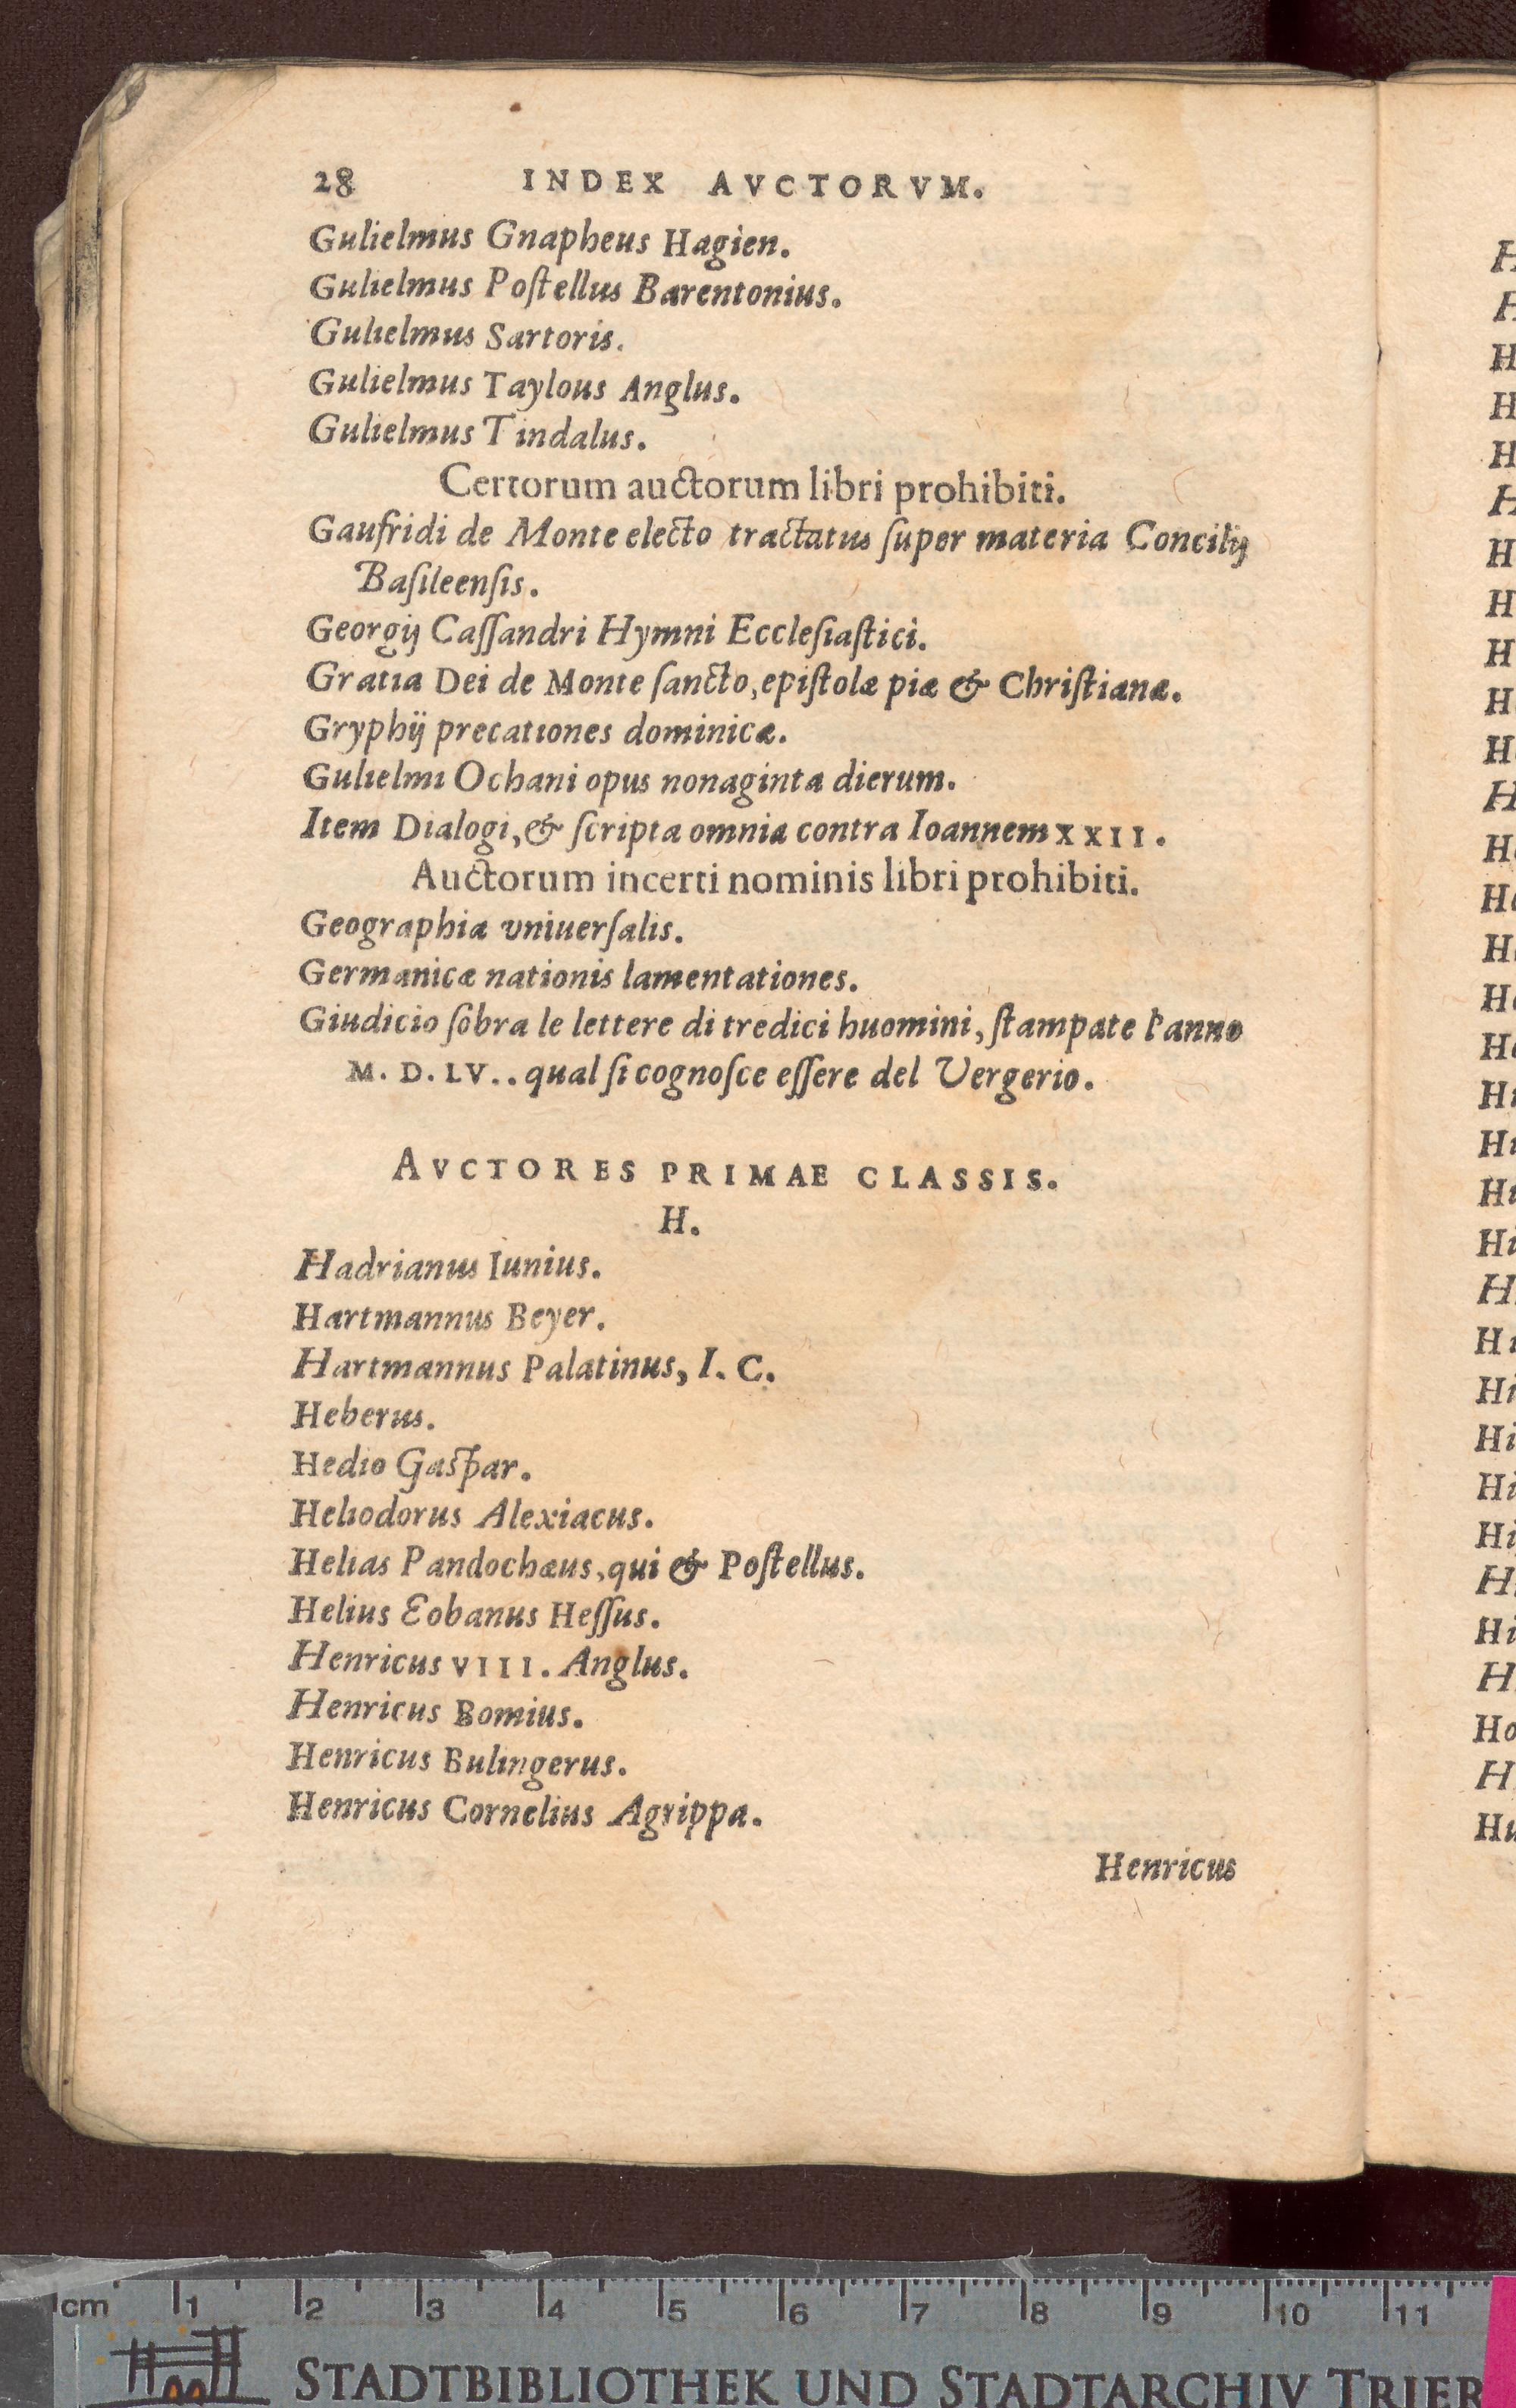 28 INDEX AVCTORVM.
Gulielmus Gnapheus Hagien.
Gulielmus Poſtellus Barentonius.
Gulielmus Sartoris.
Gulielmus Taylous Anglus.
Gulielmus Tindalus.
Certorum auctorum libri prohibiti.
Gaufridi de Monte electo tractatus ſuper materia Concilij
Baſileenſis.
Georgij Caſſandri Hymni Eccleſiaſtici.
Gratia Dei de Monte ſancto, epiſtolæ piæ & Chriſtianæ.
Gryphij precationes dominicæ.
Gulielmi Ochani opus nonaginta dierum.
Item Dialogi, & ſcripta omnia contra Ioannem XXII.
Auctorum incerti nominis libri prohibiti.
Geographia vniuerſalis.
Germanicæ nationis lamentationes.
Giudicio ſobra le lettere di tredici huomini, ſtampate l'anno
M. D. LV.. qual ſi cognoſce eſſere del Vergerio.
AVCTORES PRIMAE CLASSIS.
H.
Hadrianus Iunius.
Hartmannus Beyer.
Hartmannus Palatinus, I. C.
Heberus.
Hedio Gaſpar.
Heliodorus Alexiacus.
Helias Pandochæus, qui & Poſtellus.
Helius Eobanus Heſſus.
Henricus VIII. Anglus.
Henricus Bomius.
Henricus Bulingerus.
Henricus Cornelius Agrippa.
Henricus
cm 1 2 3 4 5 6 7 8 9 10 11
STADTBIBLIOTHEK UND STADTARCHIV TRIER